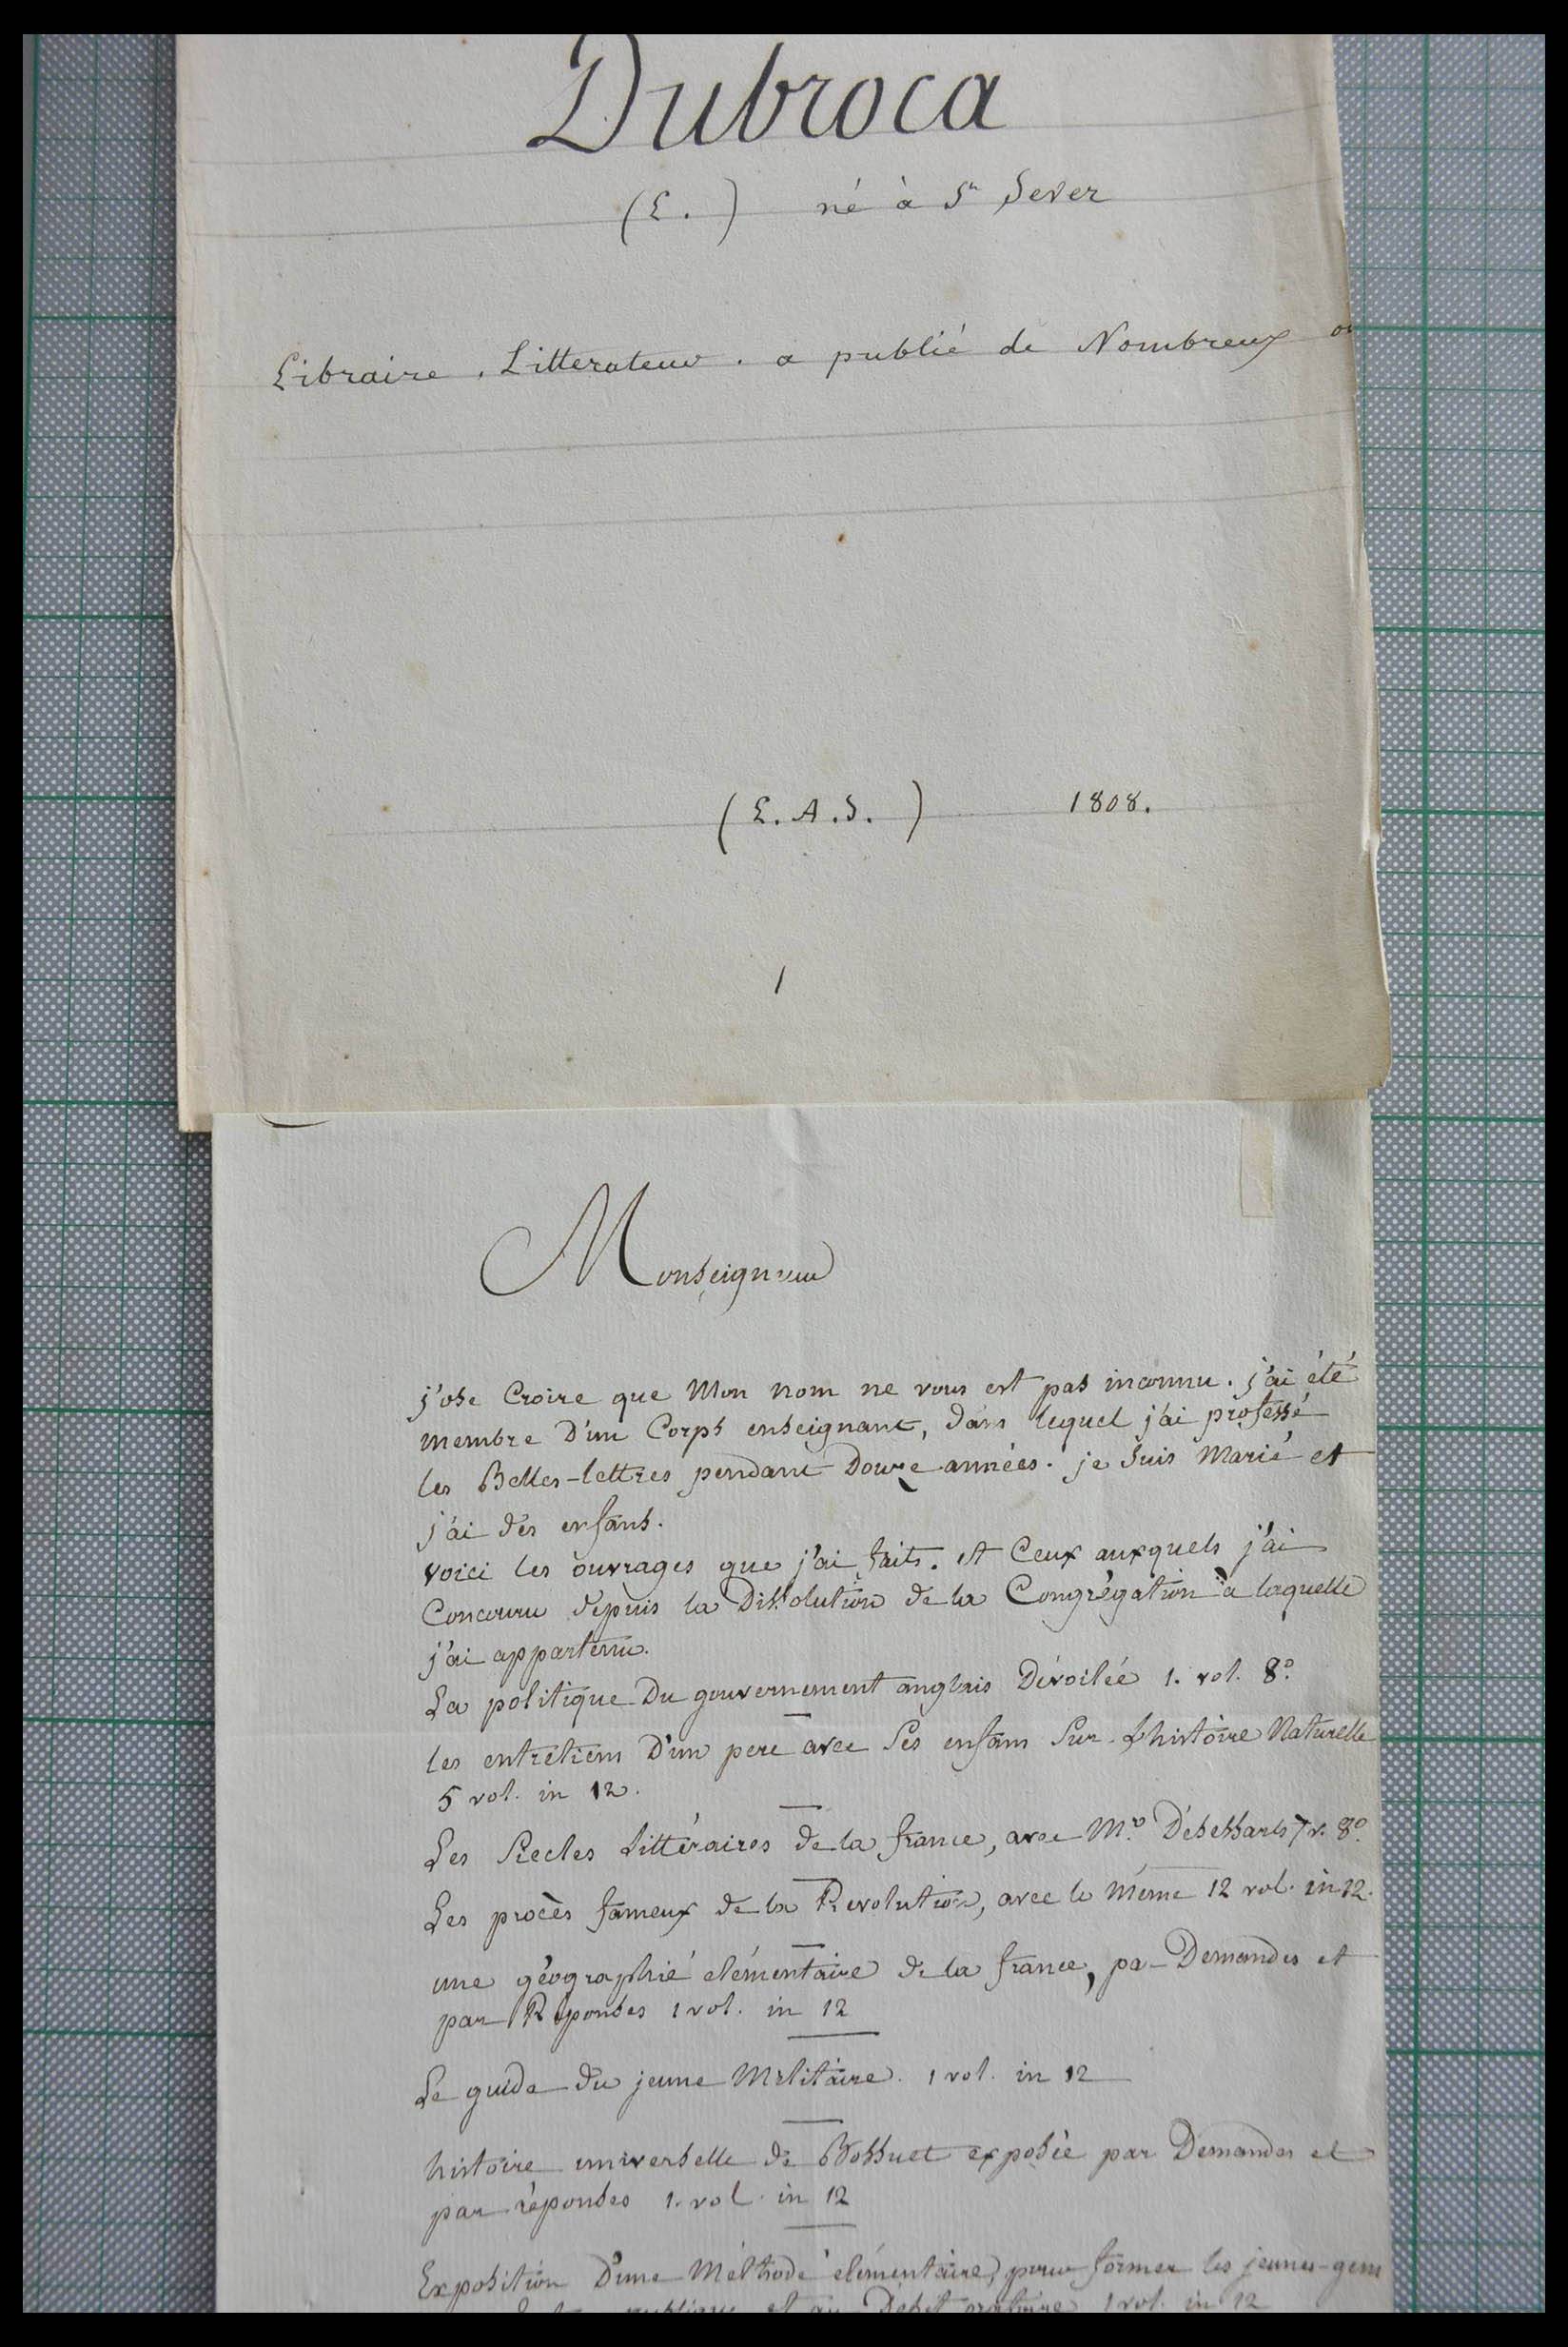 Dubroca
(L.) né à St Sever
Libraire. Litterateur. a publié de Nombreux
(L.A.S.) 1808.
1
Monseigneur
j'ose Croire que Mon nom ne vous est pas inconnu. j'ai été
membre D'un Corps enseignant, dans lequel j'ai professé
les Belles-lettres pendant Douze années. je suis Marié et
j'ai des enfans.
voici les ouvrages que j'ai faits. et Ceux auxquels j'ai
Concouru depuis la Dissolution de la Congrégation à laquelle
j'ai appartenu.
La politique Du gouvernement anglais Dévoilée 1. vol. 8°.
les entretiens D'un pere avec ses enfans sur L'histoire Naturelle
5 vol. in 12.
Les siecles Littéraires de la france, avec Mr. Désessarts 7 v. 8°.
Les procès fameux de la Revolution, avec le même 12 vol. in 12.
une géographie elémentaire de la france, par Demandes et
par Réponses 1 vol. in 12
Le guide du jeune Militaire. 1 vol. in 12
histoire universelle de Bossuet exposée par Demandes et
par réponses 1. vol. in 12
Exposition D'une Méthode élémentaire, pour former les jeunes-gens
publique et au Débit oratoire 1 vol. in 12